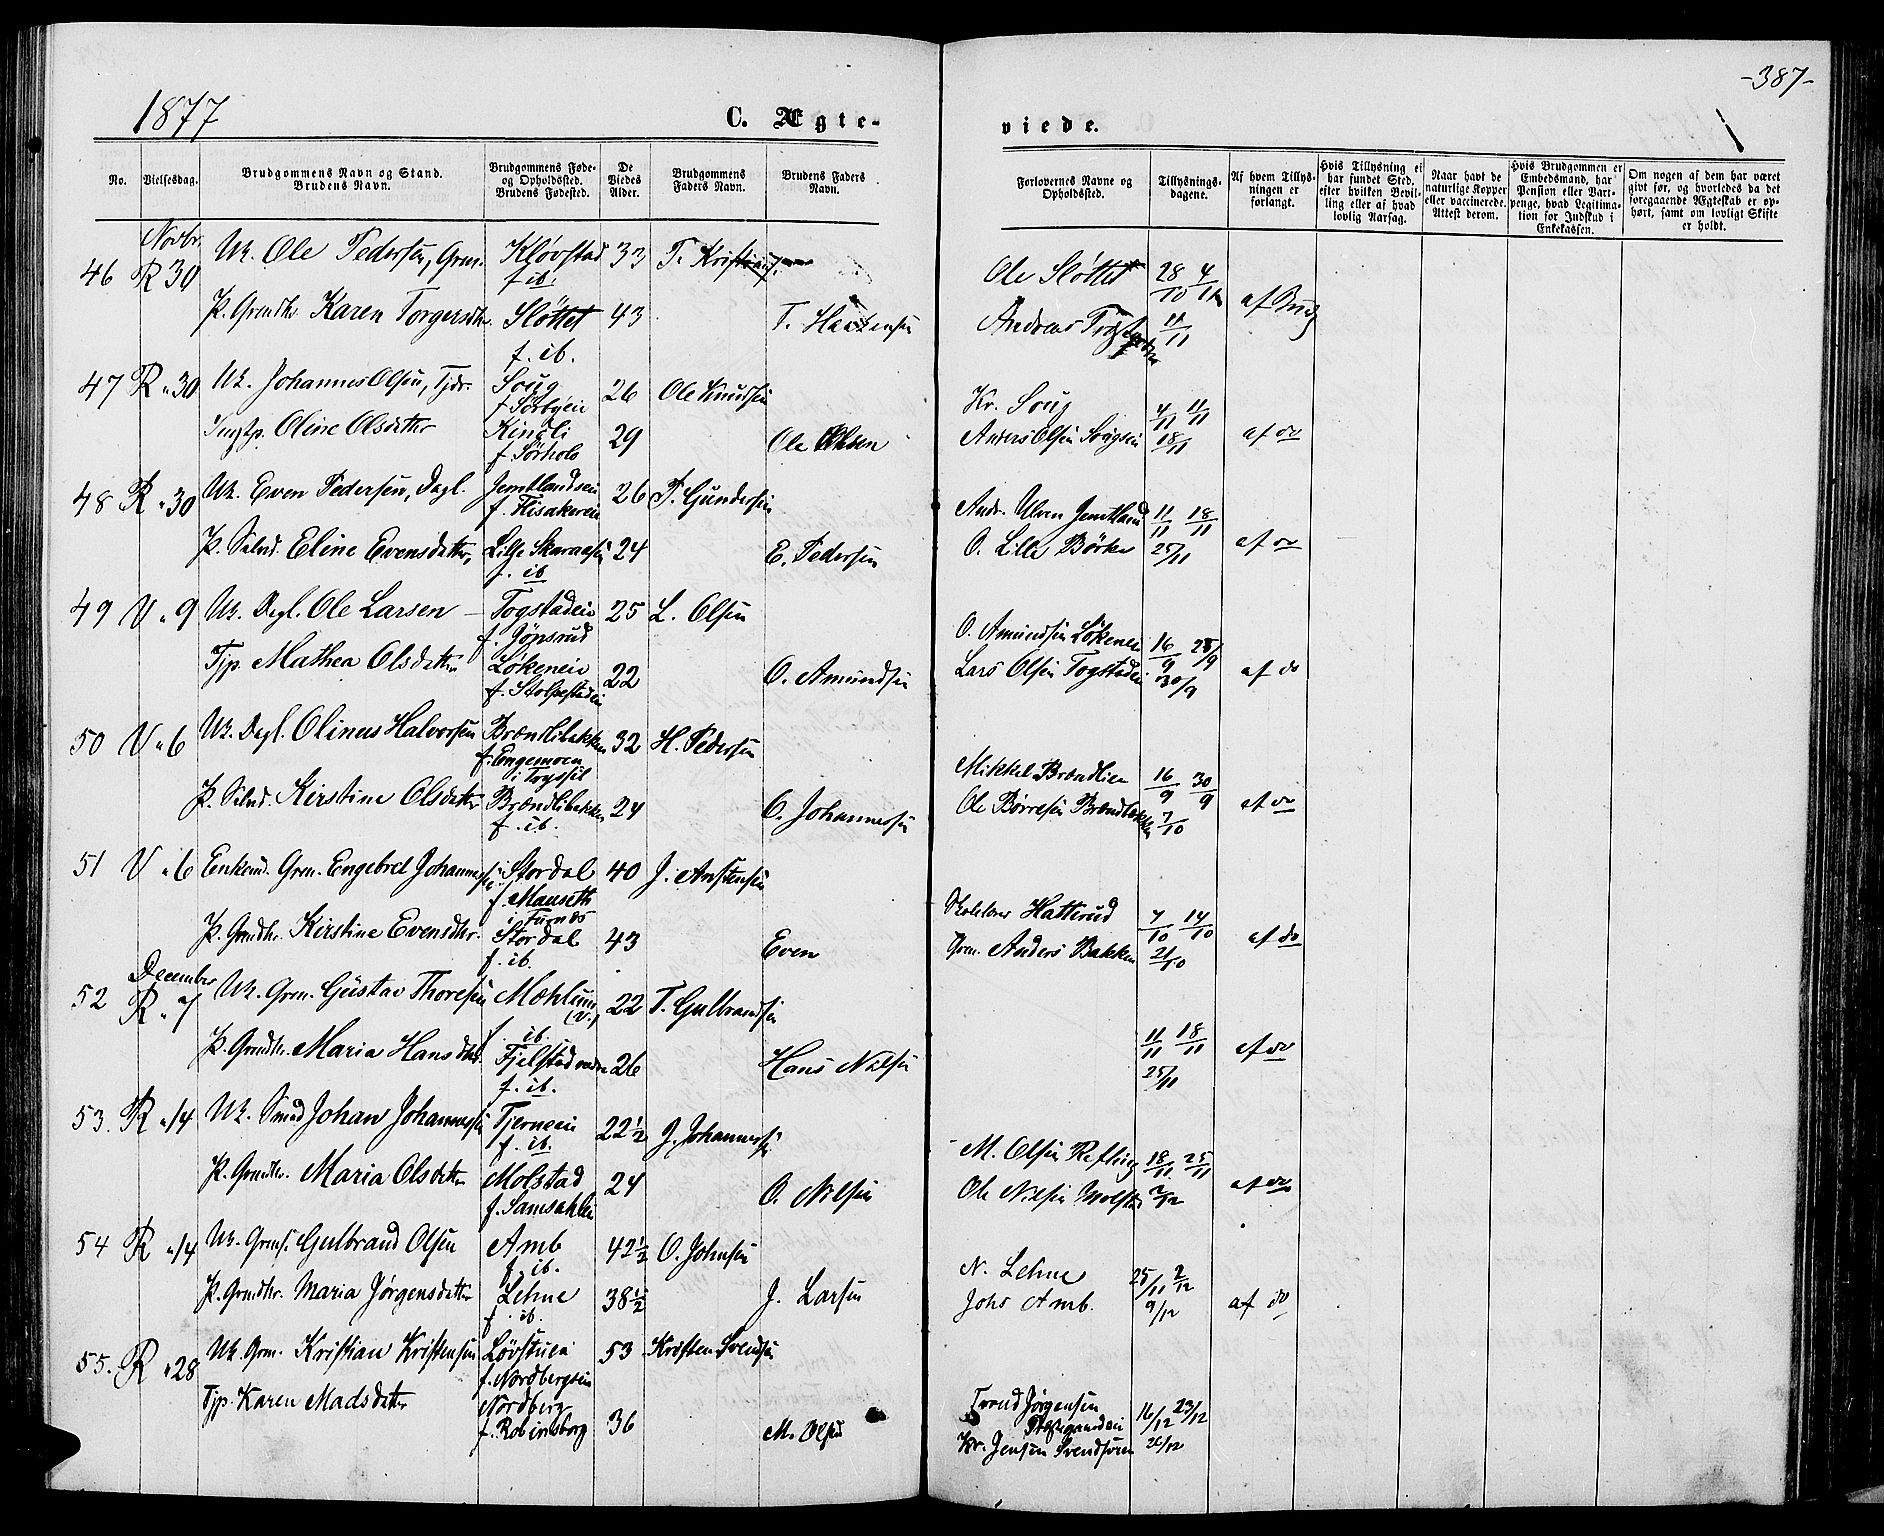 1877
C. Ægte-
viede.
-387-
No.
Vielsesdag.
Brudgommens Navn og Stand.
Brudens Navn.
Brudgommens Føde-
og Opholdssted.
Brudens Fødested.
De
Viedes
Alder.
Brudgommens
Faders Navn.
Brudens Faders
Navn.
Forlovernes Navne og
Opholdssted.
Tillysnings-
dagene.
Af hvem Tillys-
ningen er
forlangt.
Hvis Tillysning ei
har fundet Sted,
efter hvilken Bevil-
ling eller af hvad
lovlig Aarsag.
Naar havt de
naturlige Kopper
eller vaccinerede.
Attest derom.
Hvis Brudgommen er
Embedsmand, har
Pension eller Var-
penge, hvad Legitima-
tion for Indskud i
Enkekassen.
Om nogen af dem har været
givt før, og hvorledes da det
foregaaende Ægteskab er op-
hørt, samt om lovligt Skifte
er holdt.
Novbr.
46 R 30 Uk. Ole Pedersen, Grm. Kløvstad 33 Ole Sløttet 28/10 4/11
f. ib.
P. Grmdtr. Karen Torgersdtr. Sløttet 43 T. Andreas 11/11
f. ib.
47 R " 30 Uk. Johannes Olsen, Tjdr. Soug 26 Ole Knudsen Kr. Soug 4/11 11/11
f. Sørbyeie
Oline Olsdatter Kindli 29 Ole Olsen Anders Olsen Sougseie 18/11 af do
f. Sørholo
48 R " 30 Uk. Even Pedersen, Dagl. Jemtlandseie 26 P. Gundersen Andr. Ulven Jemtland 11/11 18/11
f. Flisakereie
P. Selvd. Eline Evensdatter, Lille Skaraasen 24 E. Pedersen O. Lille Børke 25/11 af do
f. ib
49 V " 9 Uk. Dagl. Ole Larsen Togstadeie 25 L. Olsen O. Amundsen Løkeneie 16/9
f. Gönsrud
Tjp. Mathea Olsdatter Løkeneie 22 O. Amundsen Lars Olsen Togstadeie 30/9 af do
f. Stolpestadeie
50 V " 6 Uk. Dagl. Olinus Halvorsen Brændlibakken 32 H. Pedersen Mikkel Brændlien 16/9 30/9
f. Engemoen
i Trysil
P. Selvd. Kirstine Olsdatter Brændlibakken 24 O. Johannessen Ole Børresen Brændbakken 7/10 af do
f. ib.
51 V " 6 Enkemd. Grm. Engebret Johannessen Stordal 40 J. Anstensen Hatterud 7/10 14/10
f. Mauseth
i Furnes
P. Grmdtr. Kirstine Evensdtr. Stordal 43 Even Grm. Anders Bakken 21/10 af do
f. ib.
December
52 R " 7 Uk. Grm. Gustav Thoresen Mæhlum (V.) 22 T. Gulbrandsen 11/11 18/11 af do
f. ib.
P. Grmdtr. Maria Hansdtr. Fjelstad nedre 26 Hans Nilsen 25/11
f. ib.
53. R " 14 Uk. Smed Johan Johannessen Tjerneeie 22½ J. Johannessen M. Olsen Refling 18/11 25/11
f. ib.
P. Grmdtr. Maria Olsdatter Molstad 24 O. Nilsen Ole Nilsen Molstad 2/12 af do
f. Samsahleie
54 R " 14 Uk. Grms. Gulbrand Olsen Amb 42½ O. Johnsen N. Lehne 25/11 2/12
f. ib.
P. Grmdtr. Maria Jørgensdatter Lehne 38½ J. Larsen Johs Amb. 9/12 af do
f. ib.
55. R " 28 Uk. Grm. Kristian Kristensen Løvstuen 53 Kristen Svendsen Trond Jørgensen 16/12 23/12
f. Nordbergseie
Tjp. Karen Madsdatter Nordberg 36 M. Olsen Kr. Jensen 26/12
f. Robinsborg